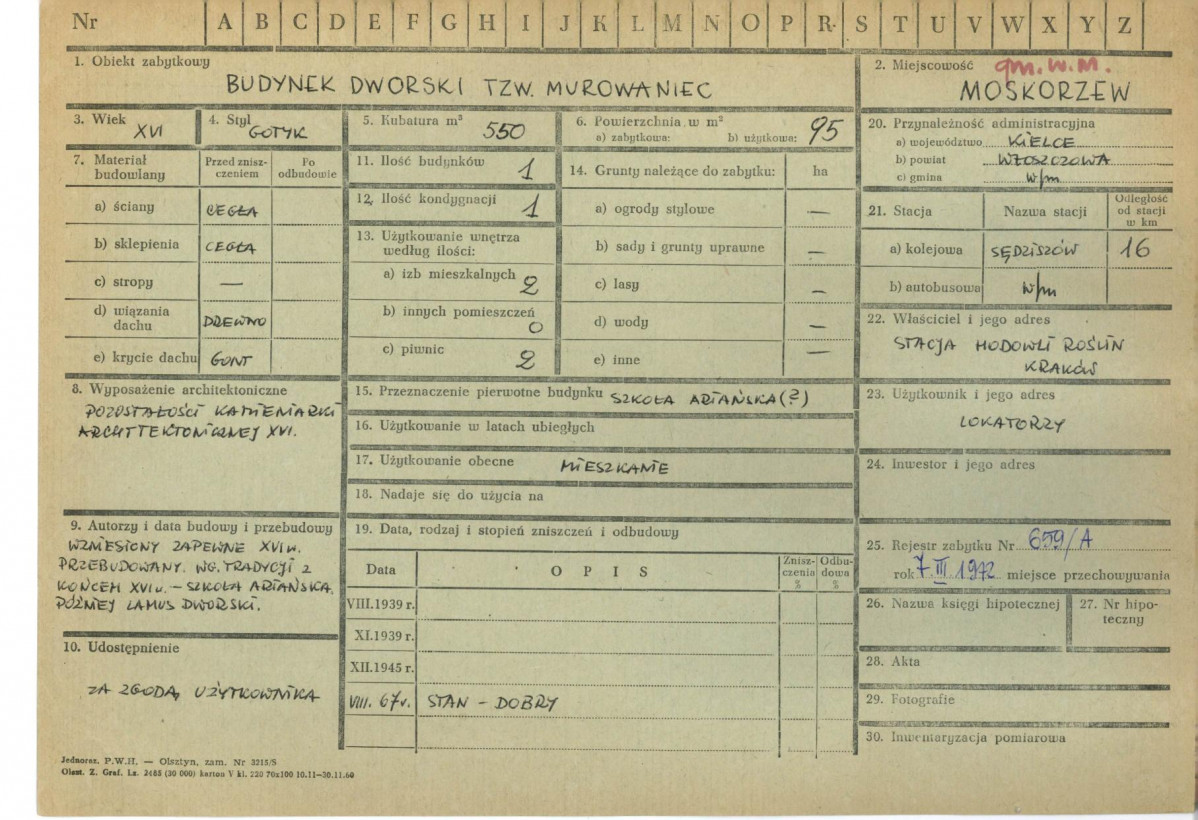 Nr A B C D E F G H I J K L M N O P R S T U V W X Y Z
1. Obiekt zabytkowy
BUDYNEK DWORSKI TZW. MUROWANIEC
2. Miejscowość gm. W.M.
MOSKORZEW
3. Wiek
XVI
4. Styl
GOTYK
5. Kubatura m³
550
6. Powierzchnia w m²
a) zabytkowa: b) użytkowa: 95
7. Materiał budowlany
Przed zniszczeniem
Po odbudowie
a) ściany CEGŁA
b) sklepienia CEGŁA
c) stropy —
d) wiązania dachu DREWNO
e) krycie dachu GONT
8. Wyposażenie architektoniczne
POZOSTAŁOŚCI KAMIENIARKI
ARCHITEKTONICZNEJ XVI.
9. Autorzy i data budowy i przebudowy
WZNIESIONY ZAPEWNE XVI w.
PRZEBUDOWANY. WG. TRADYCJI Z
KOŃCEM XVI w. – SZKOŁA ARIAŃSKA.
PÓŹNIEJ LAMUS DWORSKI.
10. Udostępnienie
ZA ZGODĄ UŻYTKOWNIKA
11. Ilość budynków 1
12. Ilość kondygnacji 1
13. Użytkowanie wnętrza
według ilości:
a) izb mieszkalnych 2
b) innych pomieszczeń 0
c) piwnic 2
14. Grunty należące do zabytku: ha
a) ogrody stylowe —
b) sady i grunty uprawne —
c) lasy —
d) wody —
e) inne —
15. Przeznaczenie pierwotne budynku SZKOŁA ARIAŃSKA (?)
16. Użytkowanie w latach ubiegłych
17. Użytkowanie obecne MIESZKANIE
18. Nadaje się do użycia na
19. Data, rodzaj i stopień zniszczeń i odbudowy
Data
O P I S
Zniszczenia %
Odbudowa %
VIII.1939 r.
XI.1939 r.
XII.1945 r.
VIII. 67r. STAN – DOBRY
20. Przynależność administracyjna
a) województwo KIELCE
b) powiat WŁOSZCZOWA
c) gmina w/m
21. Stacja
Nazwa stacji
Odległość
od stacji
w km
a) kolejowa SĘDZISZÓW 16
b) autobusowa w/m
22. Właściciel i jego adres
STACJA HODOWLI ROŚLIN
KRAKÓW
23. Użytkownik i jego adres
LOKATORZY
24. Inwestor i jego adres
25. Rejestr zabytku Nr 659/A
rok 7 III 1972 miejsce przechowywania
26. Nazwa księgi hipotecznej
27. Nr hipoteczny
28. Akta
29. Fotografie
30. Inwentaryzacja pomiarowa
Jednoraz. P.W.H. — Olsztyn, zam. Nr 3215/S
Olszt. Z. Graf. Lz. 2485 (30 000) karton V kl. 220 70x100 10.11—30.11.60